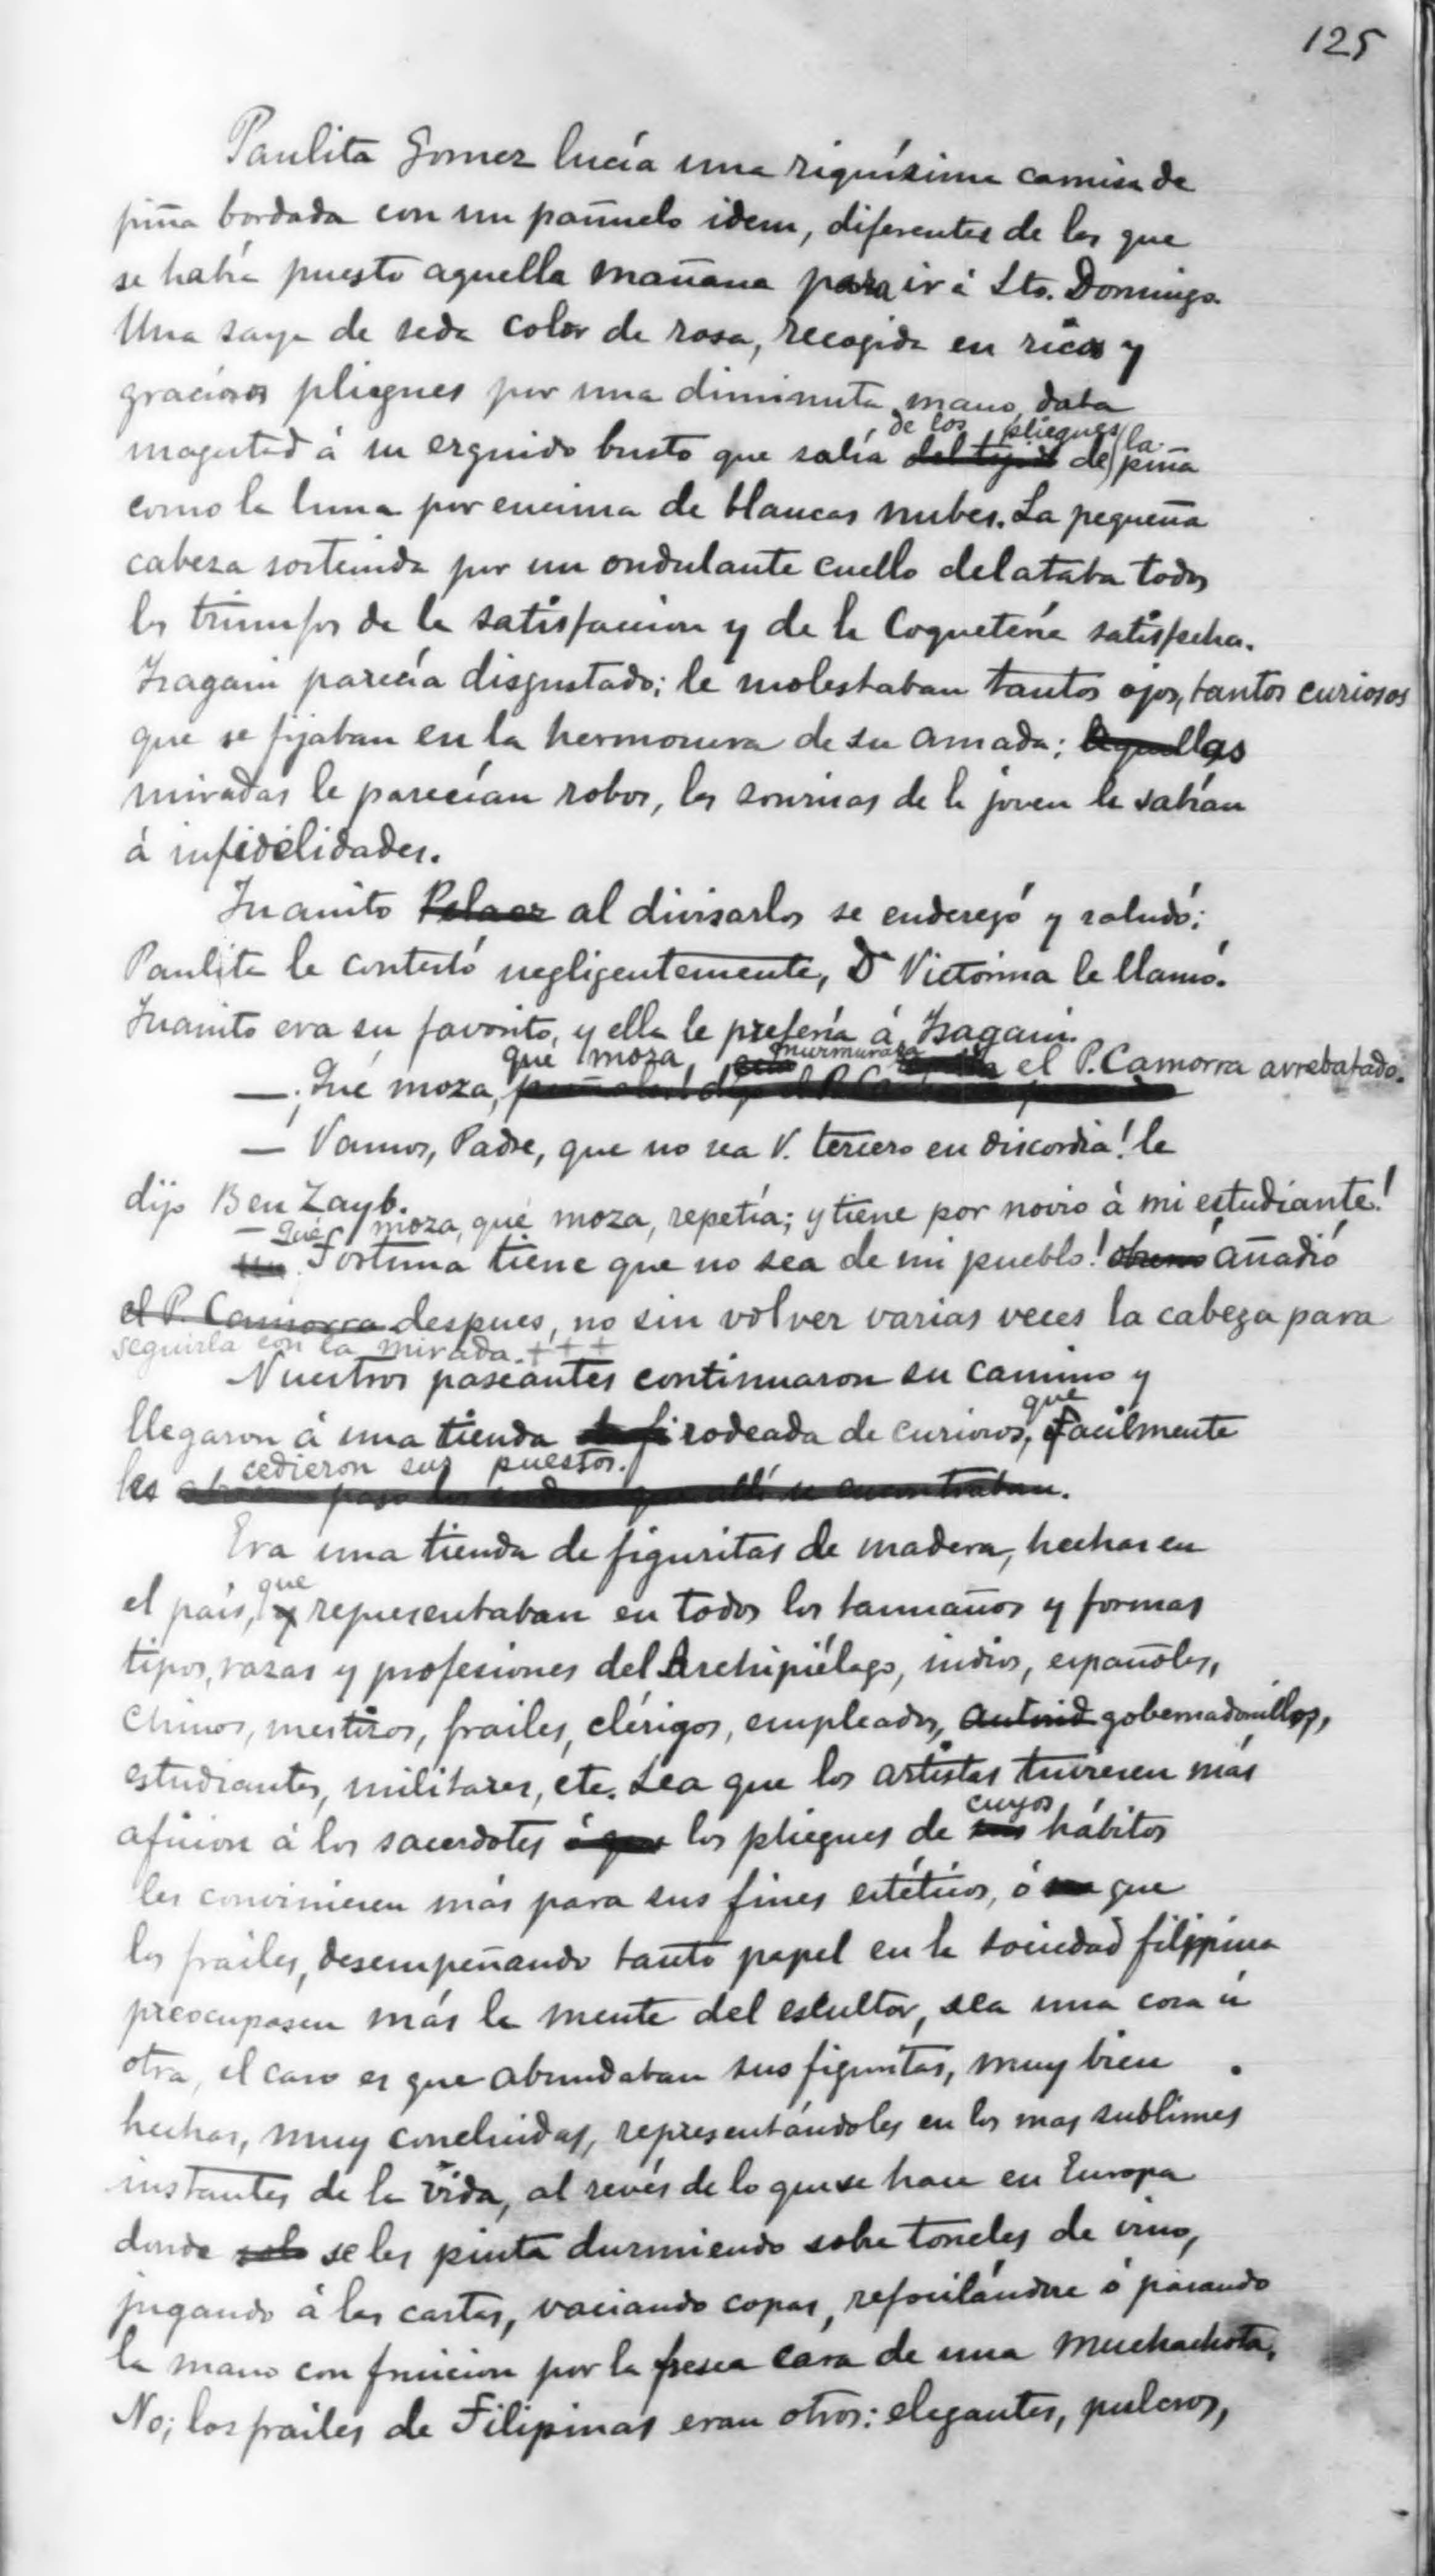 125
Paulita Gomez lucía una riquísima camisa de
piña bordada con un pañuelo idem, diferentes de los que
se había puesto aquella mañana para ir á Sto. Domingo.
Una saya de seda color de rosa, recogida en ricos y
graciosos pliegues por una diminuta mano, daba
de los pliegues la
magestad á su erguido busto que salía del tejido de piña
como la luna por encima de blancas nubes. La pequeña
cabeza sostenida por un ondulante cuello delataba todos
los triunfos de la satisfaccion y de la coquetería satisfecha.
Isagani parecía disgustado; le molestaban tantos ojos, tantos curiosos
que se fijaban en la hermosura de su amada; Aquellas
miradas le parecían robos, las sonrisas de la joven le sabían
á infidelidades.
Juanito Pelaez al divisarlos se enderezó y saludó;
Paulita le contestó negligentemente, Dª Victorina le llamó.
Juanito era su favorito, y ella le prefería á Isagani.
que moza, murmuraba el P. Camorra arrebatado.
— ¡Qué moza,
— Vamos, Padre, que no sea V. tercero en discordia! le
dijo Ben Zayb.
— Qué moza, qué moza, repetía; y tiene por novio á mi estudiante!
Fortuna tiene que no sea de mi pueblo! añadió
el P. Camorra despues, no sin volver varias veces la cabeza para
seguirla con la mirada. +++
Nuestros paseantes continuaron su camino y
que
llegaron á una tienda rodeada de curiosos, facilmente
cedieron sus puestos.
les allí se encontraban.
Era una tienda de figuritas de madera, hechas en
que
el país, y representaban en todos los tammaños y formas
tipos, razas y profesiones del Archipiélago, indios, españoles,
chinos, mestizos, frailes, clérigos, empleados, autorid gobernadorcillos,
estudiantes, militares, etc. Sea que los artistas tuviesen más
cuyos
aficion á los sacerdotes ó que los pliegues de sus hábitos
les conviniesen más para sus fines estéticos, ó que
los frailes, desempeñando tanto papel en la sociedad filipina
preocupasen más la mente del escultor, sea una cosa ú
otra, el caso es que abundaban sus figuritas, muy bien
hechas, muy concluidas, representándoles en los mas sublimes
instantes de la vida, al revés de lo que se hace en Europa
donde solo se les pinta durmiendo sobre toneles de vino,
jugando á las cartas, vaciando copas, refocilándose ó pasando
la mano con fruicion por la fresca cara de una muchachota.
No; los frailes de Filipinas eran otros: elegantes, pulcros,